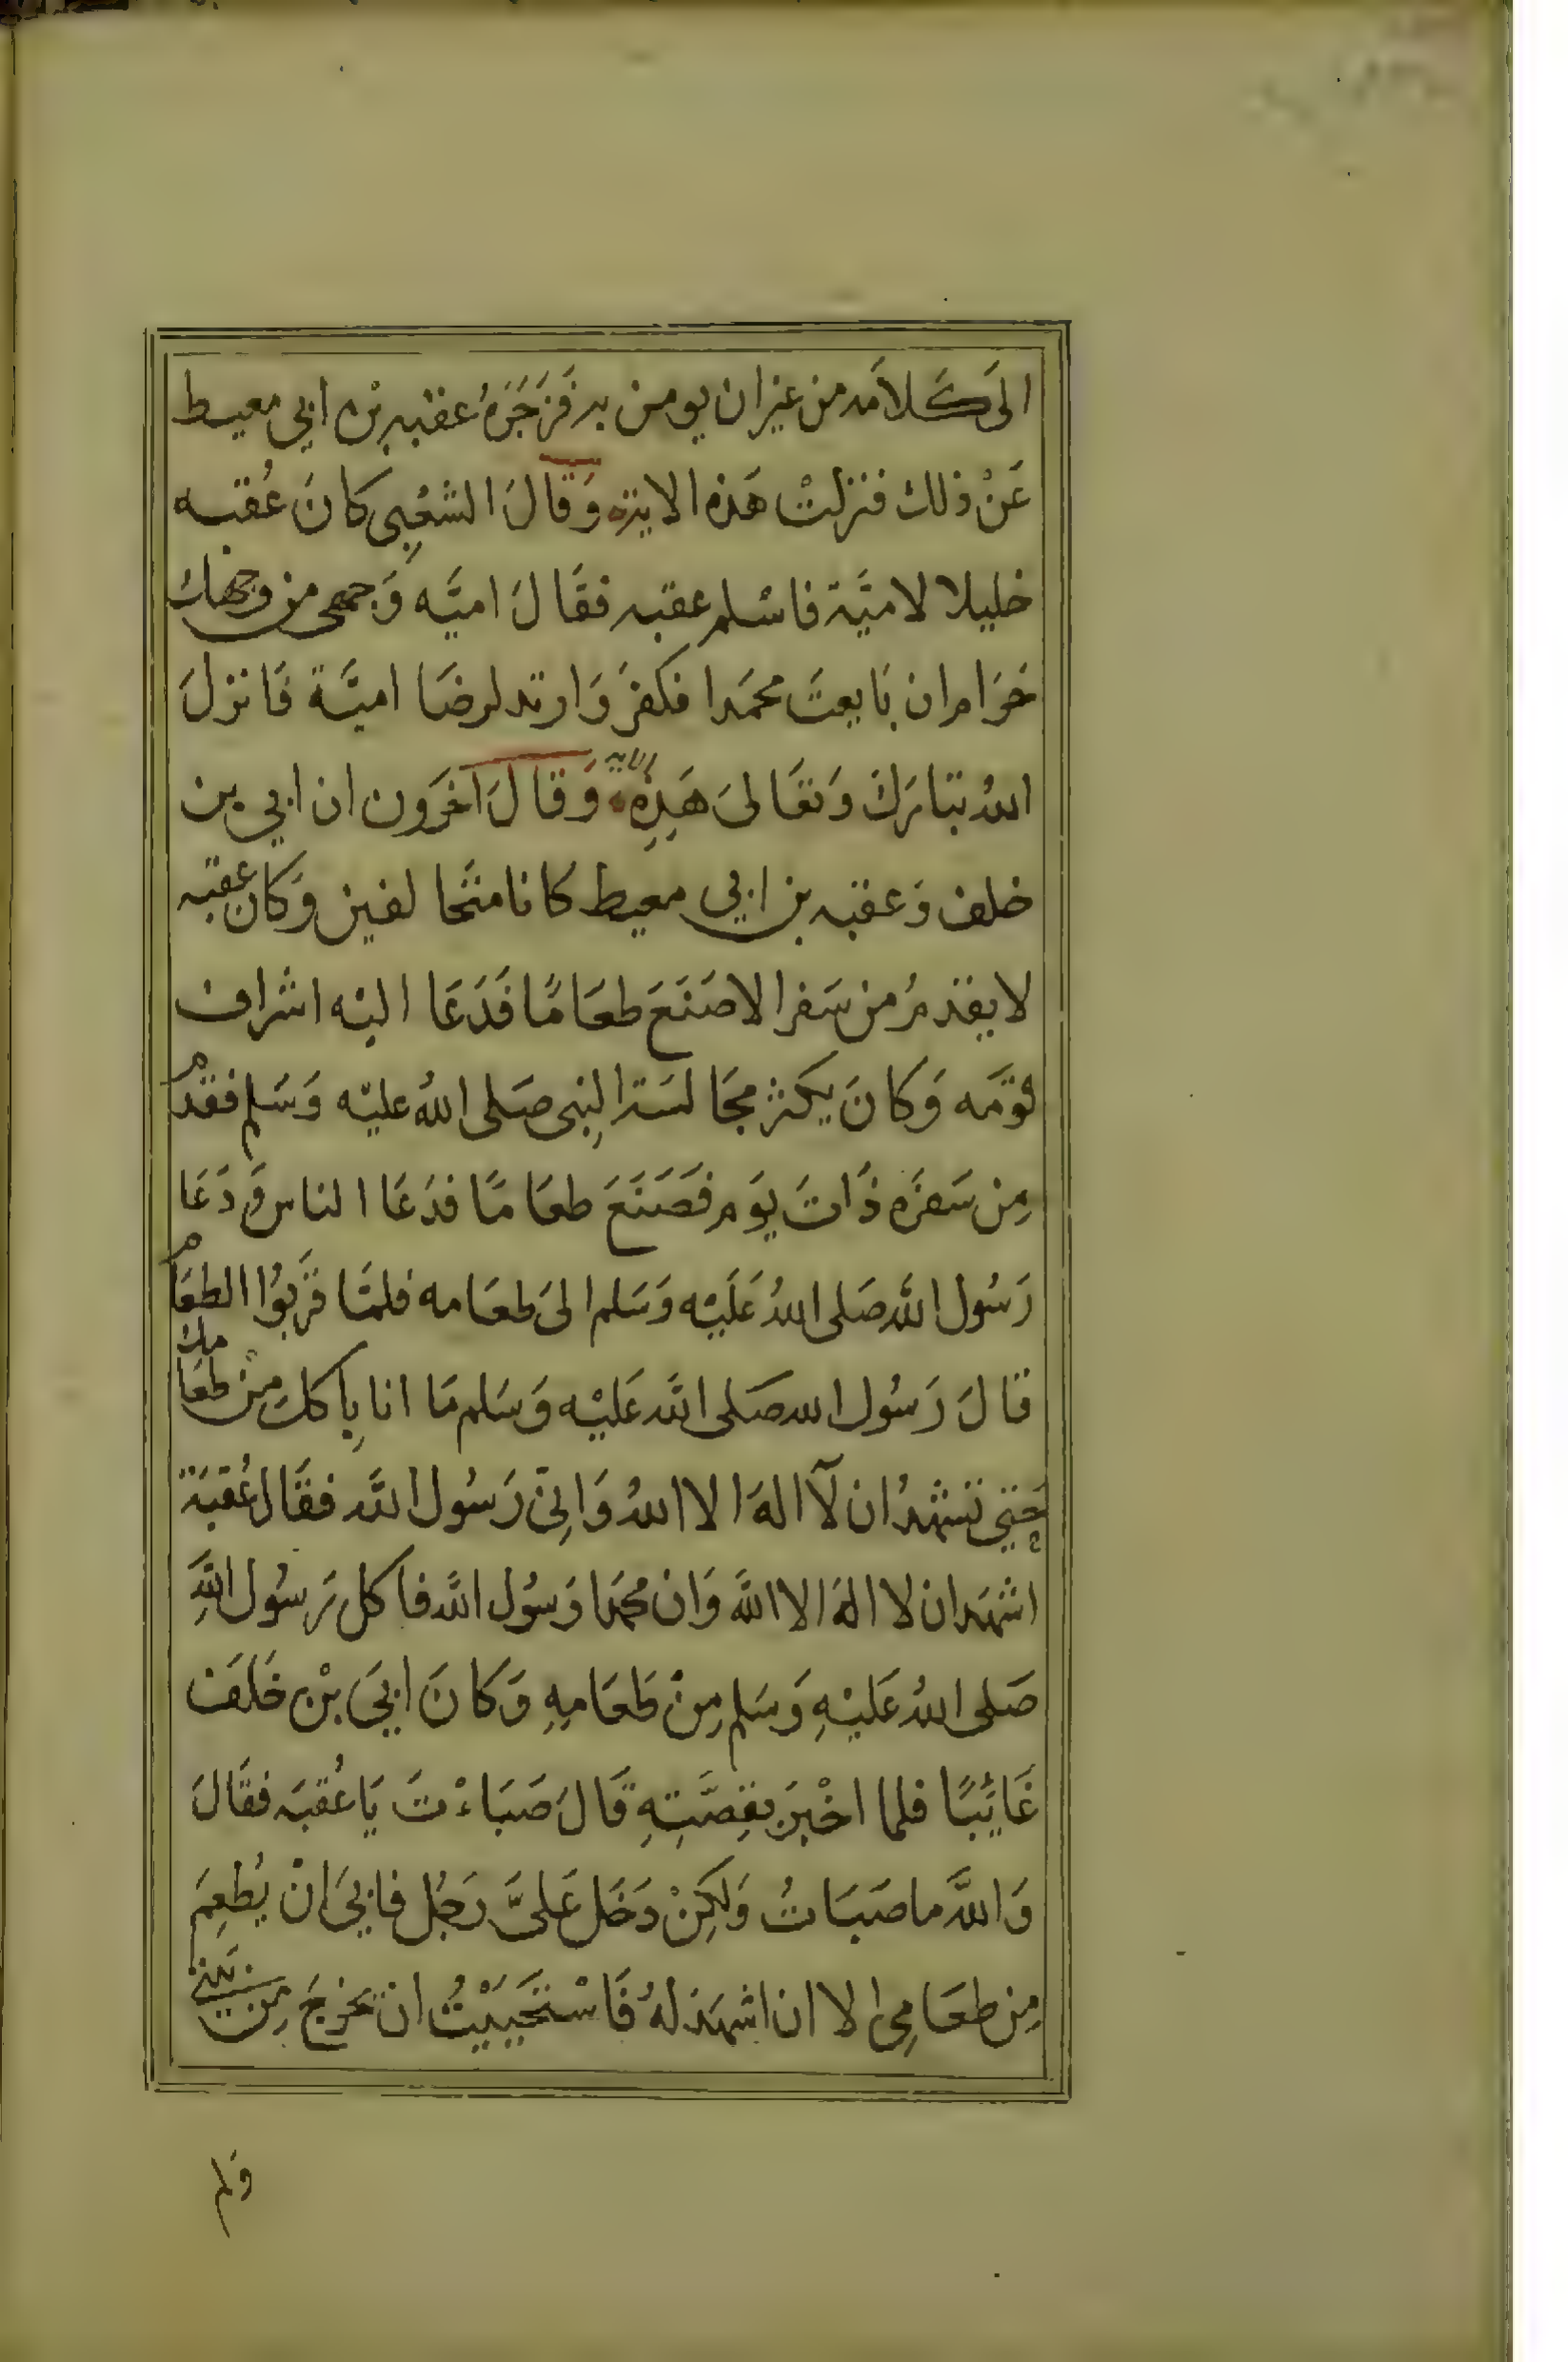 الَى كَلَامه من غير ان يومن به فَزَجَرَهُ عقبه بْن ابي معيط
عَنْ ذلك فنزلتْ هَذه الاية وَقالَ الشعْبِى كانَ عُقبه
خليلا لاميَّة فاسْلم عقبه فقَالَ اميَّه وَجهى من وجهك
حَرَام ان بَايعتَ محمَدا فكفرَ وَارتد لرضَا اميَّة فَانزلَ
اللهُ تبَارَك وَتعَالىَ هَذِه الايه وَقالَ اخَرون ان ابي بن
خلف وَعقبه بن ابي معيط كانا متحَا لفين وَكان عقبه
لا يقدمُ من سَفر الا صَنَعَ طعَامًا فَدَعَا اليْه اشراف
قومَه وَكانَ يكثر مجَالسَة النِبى صَلى اللهُ عليْه وَسَلم فقدم
مِن سَفرَه ذَاتَ يوَم فصَنَعَ طعَامًا فدَعَا الناس وَدَعَا
رَسُول الله صَلى اللهُ عَليْه وَسَلم الىَ طعَامه فلمَّا قرَّبوُا الطعَام
قالَ رَسُول الله صَلى الله عَليْه وَسَلم مَا انا بِاكل مِنْ طعَامك
حَتي تشهدُ ان لآ الهَ الا اللهُ وَانِيّ رَسُول الله فقَال عُقبَة
اشهَد ان لا الهَ الا اللهَ وَان محمَدا رَسُول الله فاكل رَسُول اللهِ
صَلى اللهُ عَليْهِ وَسَلم مِنْ طَعَامِهِ وَكانَ ابيَ بْن خَلَف
غَائِبًا فلما اخْبرَ بقِصَّتِهِ قَالَ صَبَاءْتَ يَا عُقبَه فقَالَ
وَاللهَ ما صَبَاتُ وَلكِنْ دَخَل عَليَّ رَجُل فابيَ انْ يُطعِمَ
مِن طعَامِى الا ان اشهَد لهُ فَاسْتَحيَيْتُ ان يخرجَ مِن بَيتى
ولم